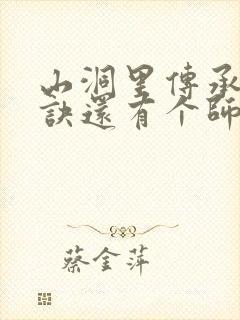 山洞里傳承
訣還有个師
蔡金萍